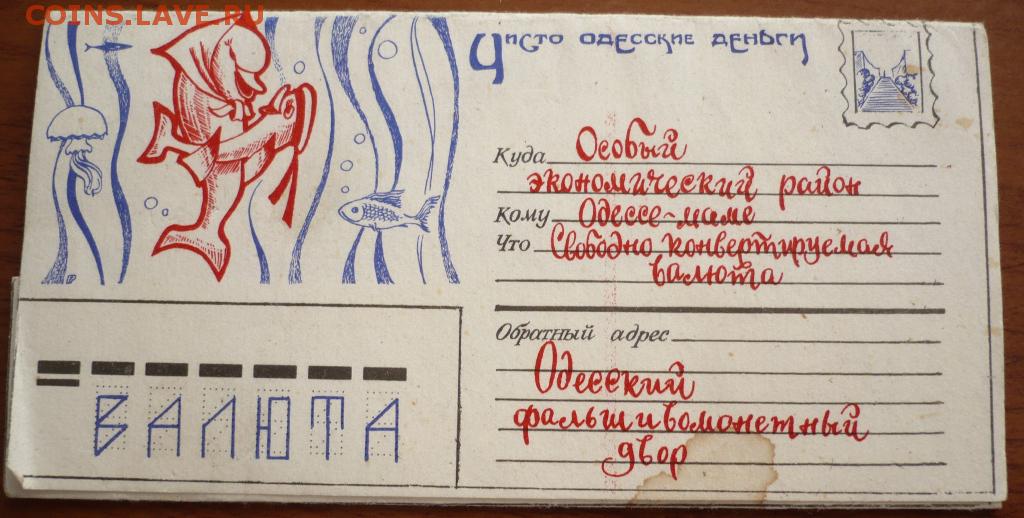 COINS.LAVE.RU
Чисто одесские деньги
Куда Особый
экономический район
Кому Одессе-маме
Что Свободно конвертируемая
валюта
Обратный адрес
Одесский
фальшивомонетный
двор
ВАЛЮТА